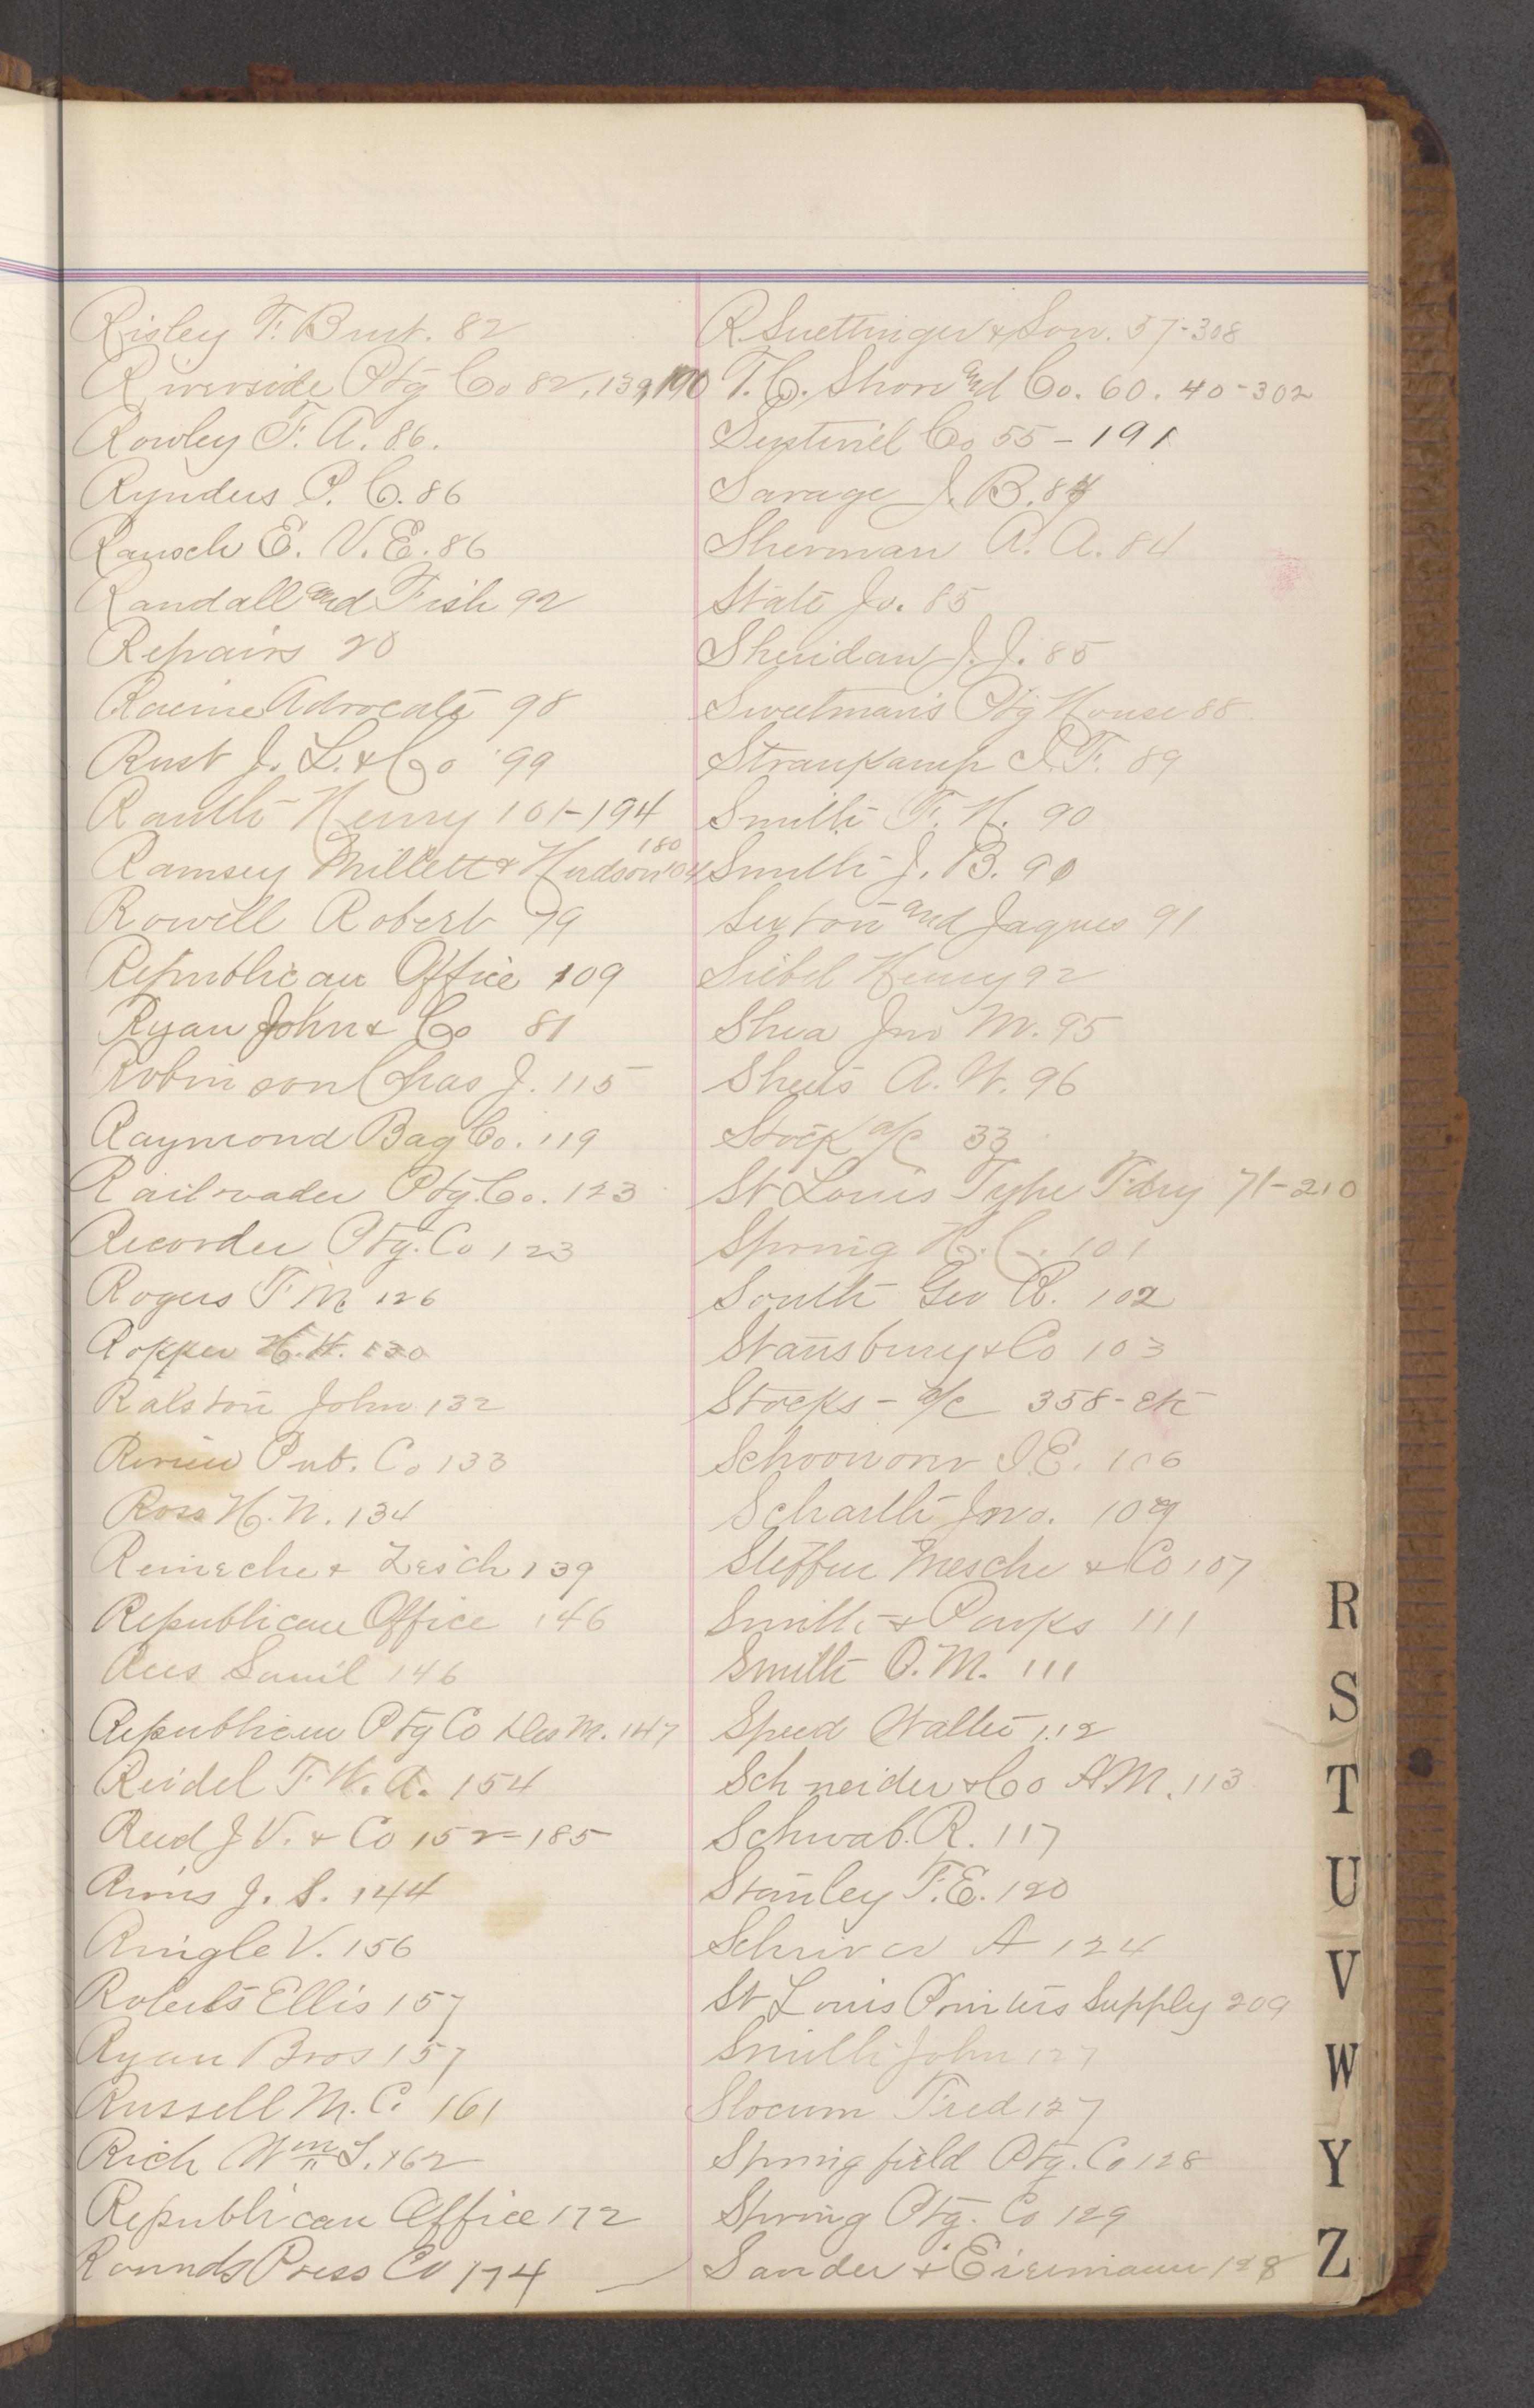 Risley F. Burt. 82
Riverside Ptg Co 82, 139, 190
Rowley F. A. 86.
Rynders P. C. 86
Rausch E. V. E. 86
Randall and Fish 92
Repairs 20
Racine Advocate 98
Rust J. L. & Co 99
Rauth Henry 101-194
Ramsey Millett & Hudson 104 180
Rowell Robert 79
Republican Office 109
Ryan John & Co 81
Robinson Chas J. 115
Raymond Bag Co. 119
Railroader Ptg. Co. 123
Recorder Ptg. Co 123
Rogers F M 126
Ropper H. H. 130
Ralston John 132
Review Pub. Co 133
Ross H. N. 134
Reineche & Zesch 139
Republican Office 146
Rees Saml 146
Republican Ptg Co Des M. 147
Reidel F. W. A. 154
Reed J V. & Co 152-185
Rivus J. S. 144
Ringle V. 156
Roberts Ellis 157
Ryan Bros 157
Russell M. C. 161
Rich Wm L. 162
Republican Office 172
Rounds Press Co 174
R. Suettinger & Son. 57-308
T. C. Shore and Co. 60. 40-302
Sentinel Co 55-191
Savage J. B. 84
Sherman A. A. 84
State Jo. 85
Sheridan J. J. 85
Sweetman's Ptg House 88
Straukamp J. F. 89
Smith F. H. 90
Smith J. B. 90
Sexton and Jaques 91
Siebel Henry 92
Shea Jno M. 95
Sheets A. W. 96
Stock a/c 33
St Louis Type Fdry 71-210
Spring H. C. 101
South Geo R. 102
Stansbury & Co 103
Stocks - a/c 358-etc
Schoonover I. E. 106
Scharth Jno. 109
Steffen Mesche & Co 107
Smith & Parks 111
Smith O. M. 111
Speed Walter 112
Schneider & Co A M. 113
Schwab. R. 117
Stanley F. E. 120
Schriver A 124
St Louis Printers Supply 209
Smith John 127
Slocum Fred 127
Springfield Ptg. Co 128
Spring Ptg. Co 129
Sander & Eisemann 128
R
S
T
U
V
W
Y
Z